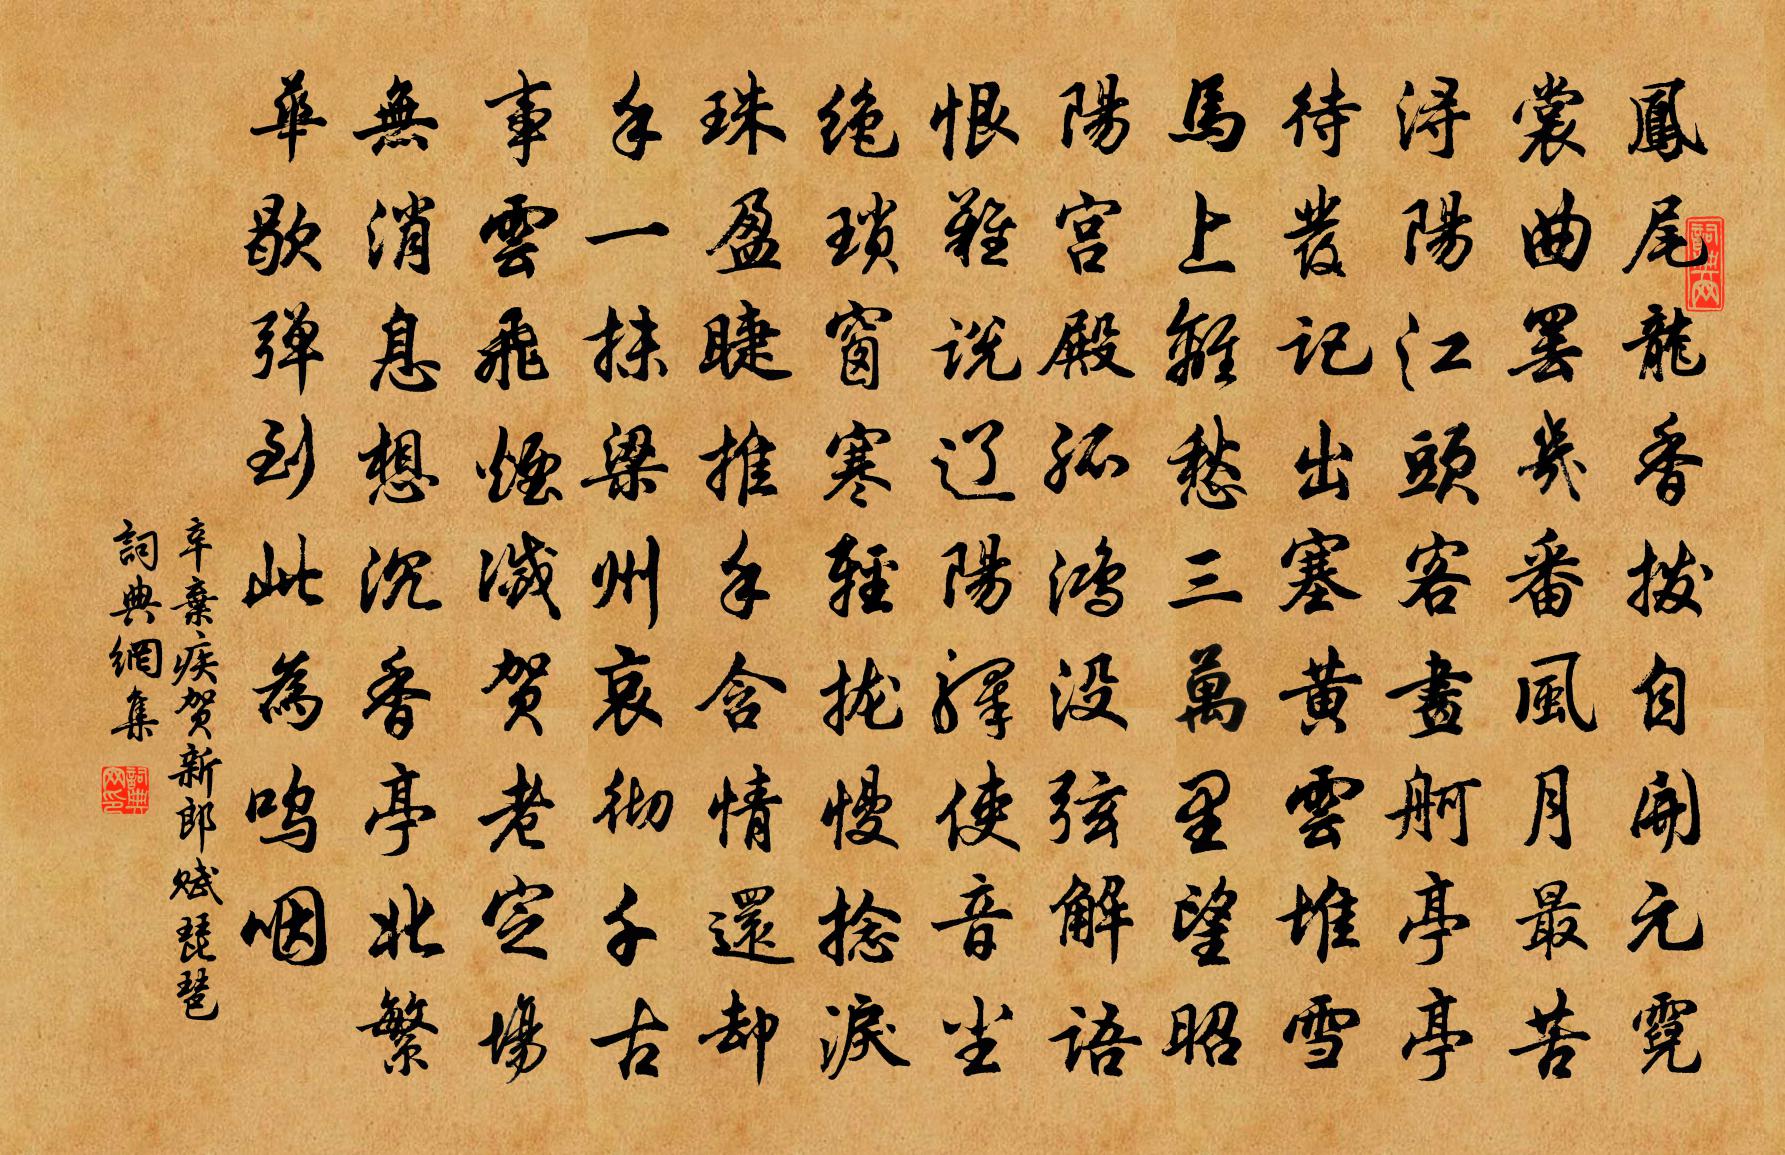 鳳尾龍香撥自開元霓
裳曲罷幾番風月最苦
潯陽江頭客畫舸亭亭
待發記出塞黃雲堆雪
馬上離愁三萬里望昭
陽宮殿孤鴻沒弦解語
恨難說辽陽驛使音塵
絕瑣窗寒輕攏慢捻淚
珠盈睫推手含情還却
手一抹梁州哀彻千古
事雲飛煙滅賀老定場
無消息想沉香亭北繁
華歇弹到此為鸣咽
辛棄疾賀新郎賦琵琶
詞典網集
詞典网
詞典网印